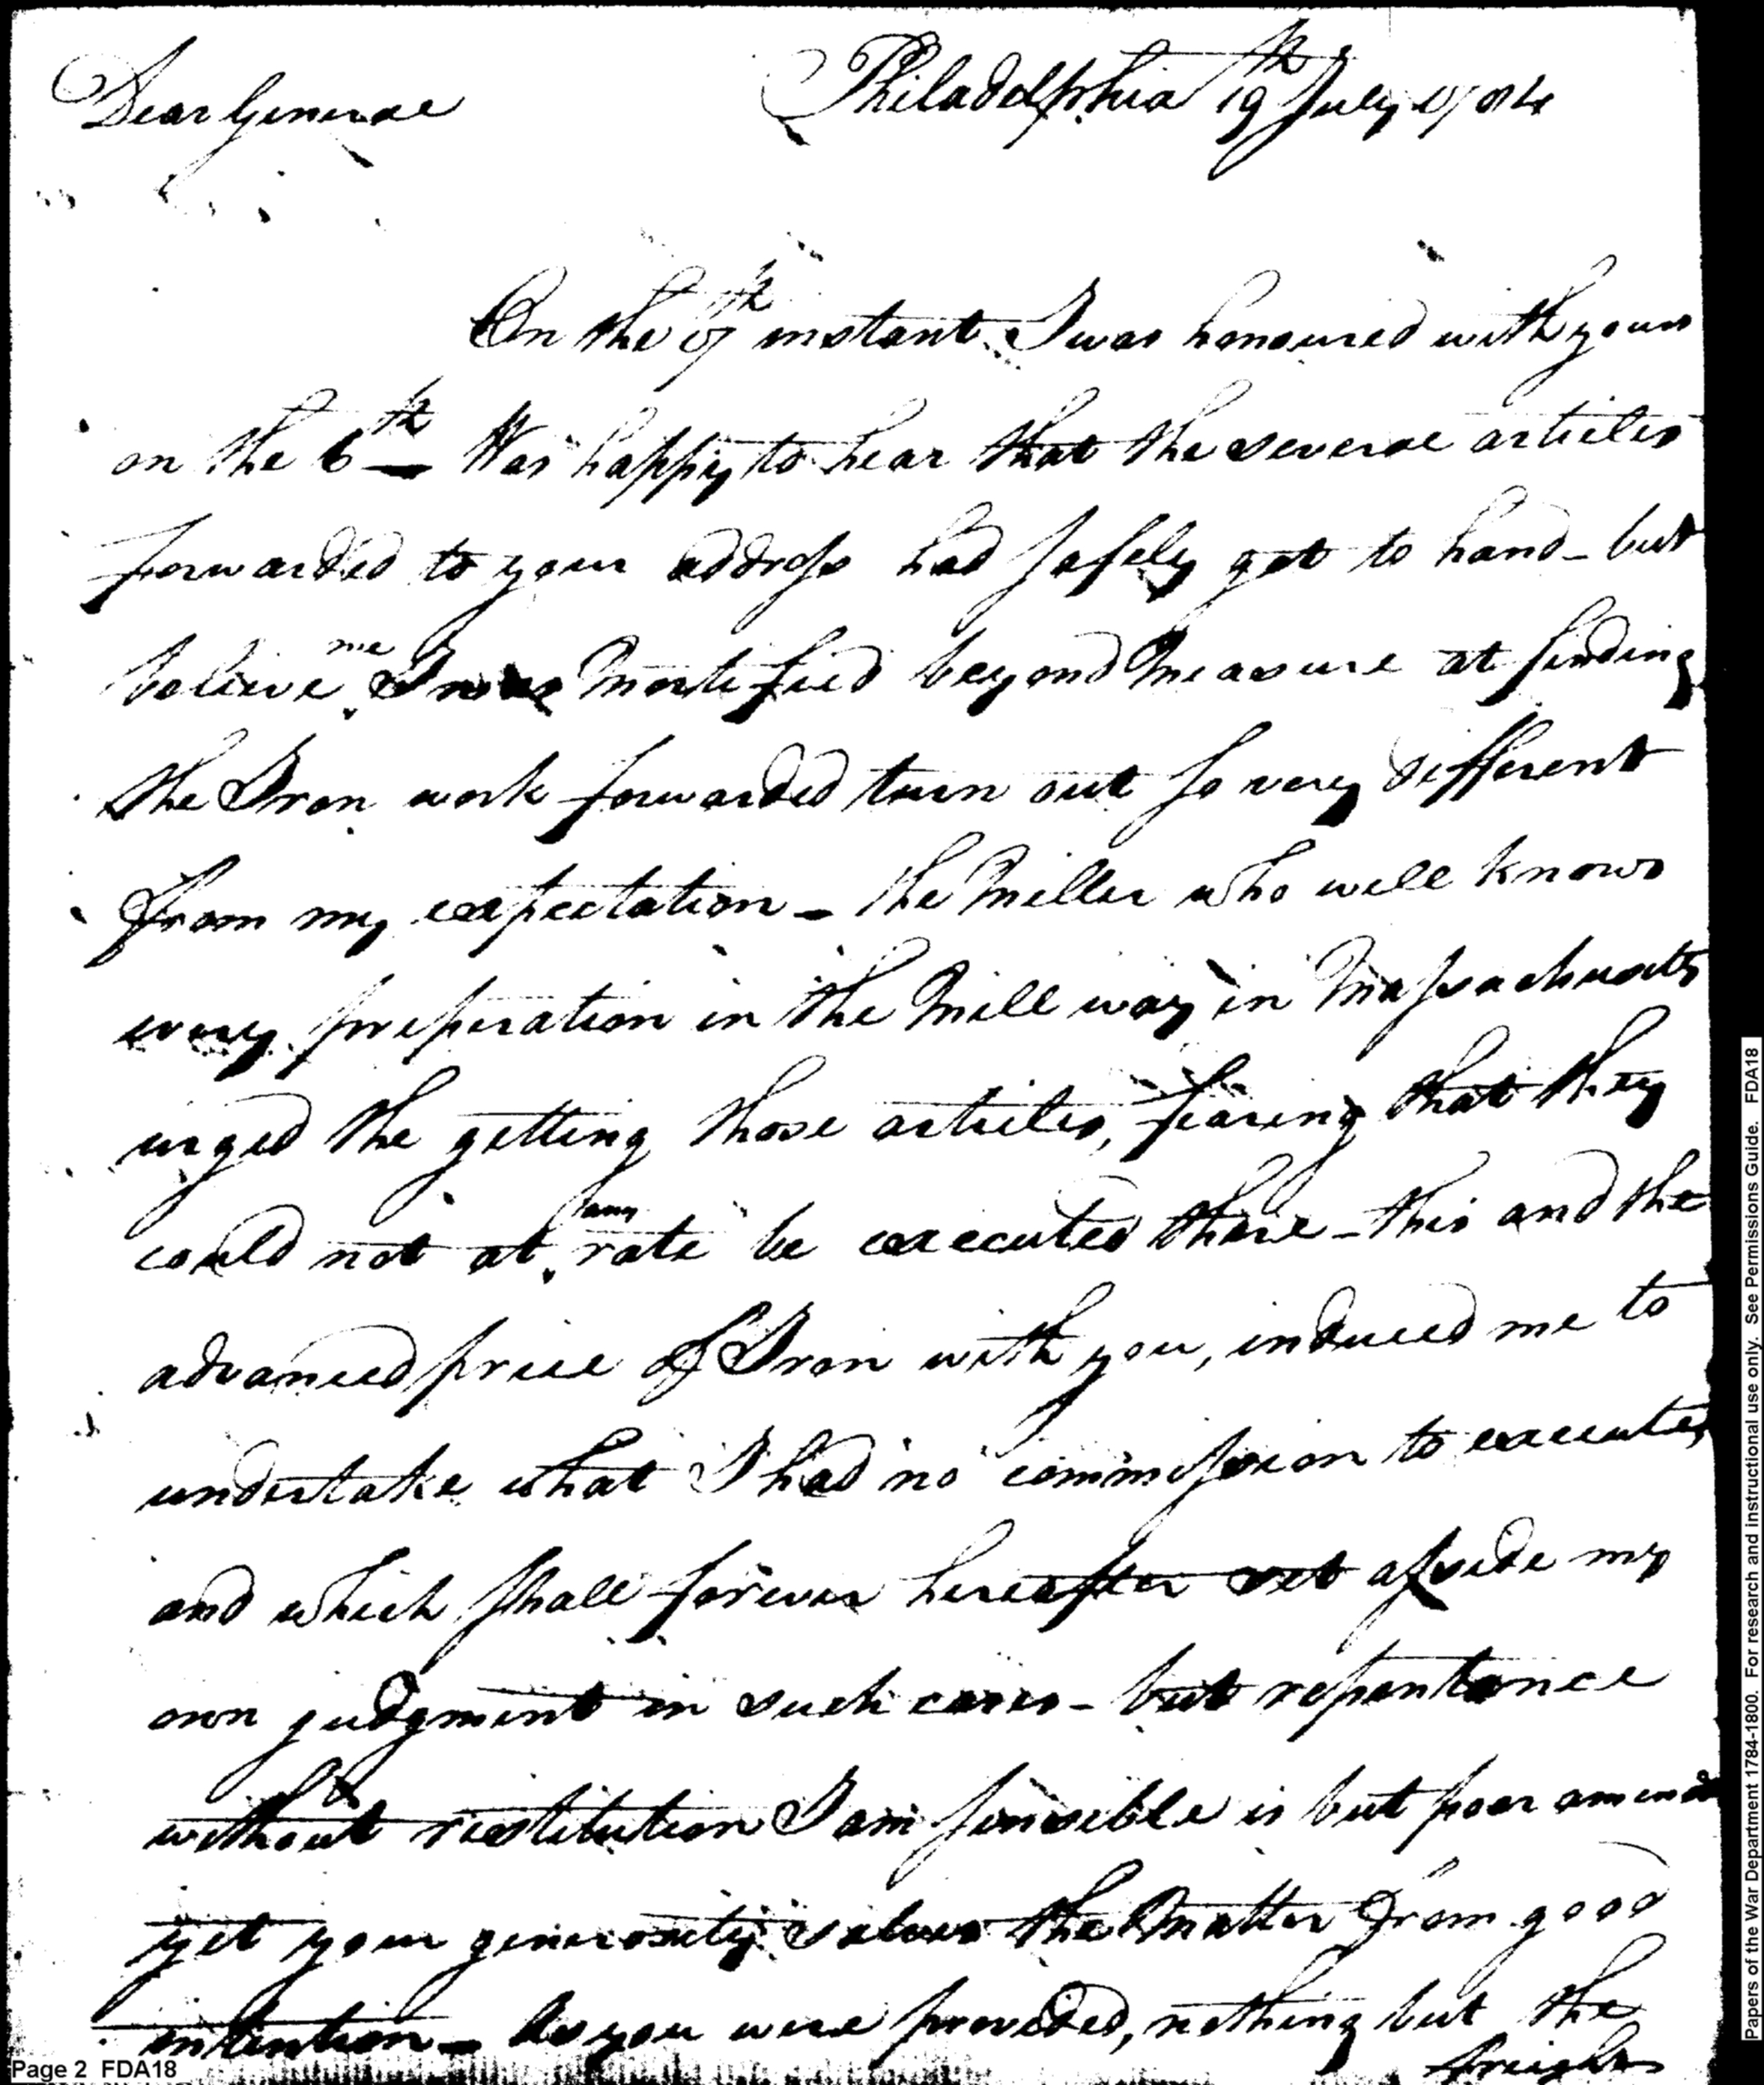 Dear General
Philadelphia 19th July 1784
On the 17th instant I was honoured with yours
on the 6th Was happy to hear that the several articles
forwarded to your address had safely got to hand - but
believe me I was mortified beyond measure at finding
the Iron work forwarded turn out so very different
from my expectation - the Miller who well knows
every preperation in the Mill way in Massachusetts
urged the getting those articles, fearing that they
could not at any rate be executed there - this and the
advanced price of Iron with you, induced me to
undertake what I had no commission to execute,
and which shall forever hereafter set asside my
own judgment in such cases - but repentance
without restitution I am sensible is but poor amends
yet your generosity solves the Matter from good
intention - As you were provided, nothing but the
freight
Page 2 FDA18
Papers of the War Department 1784-1800. For research and instructional use only. See Permissions Guide. FDA18